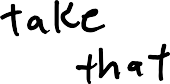 take
that